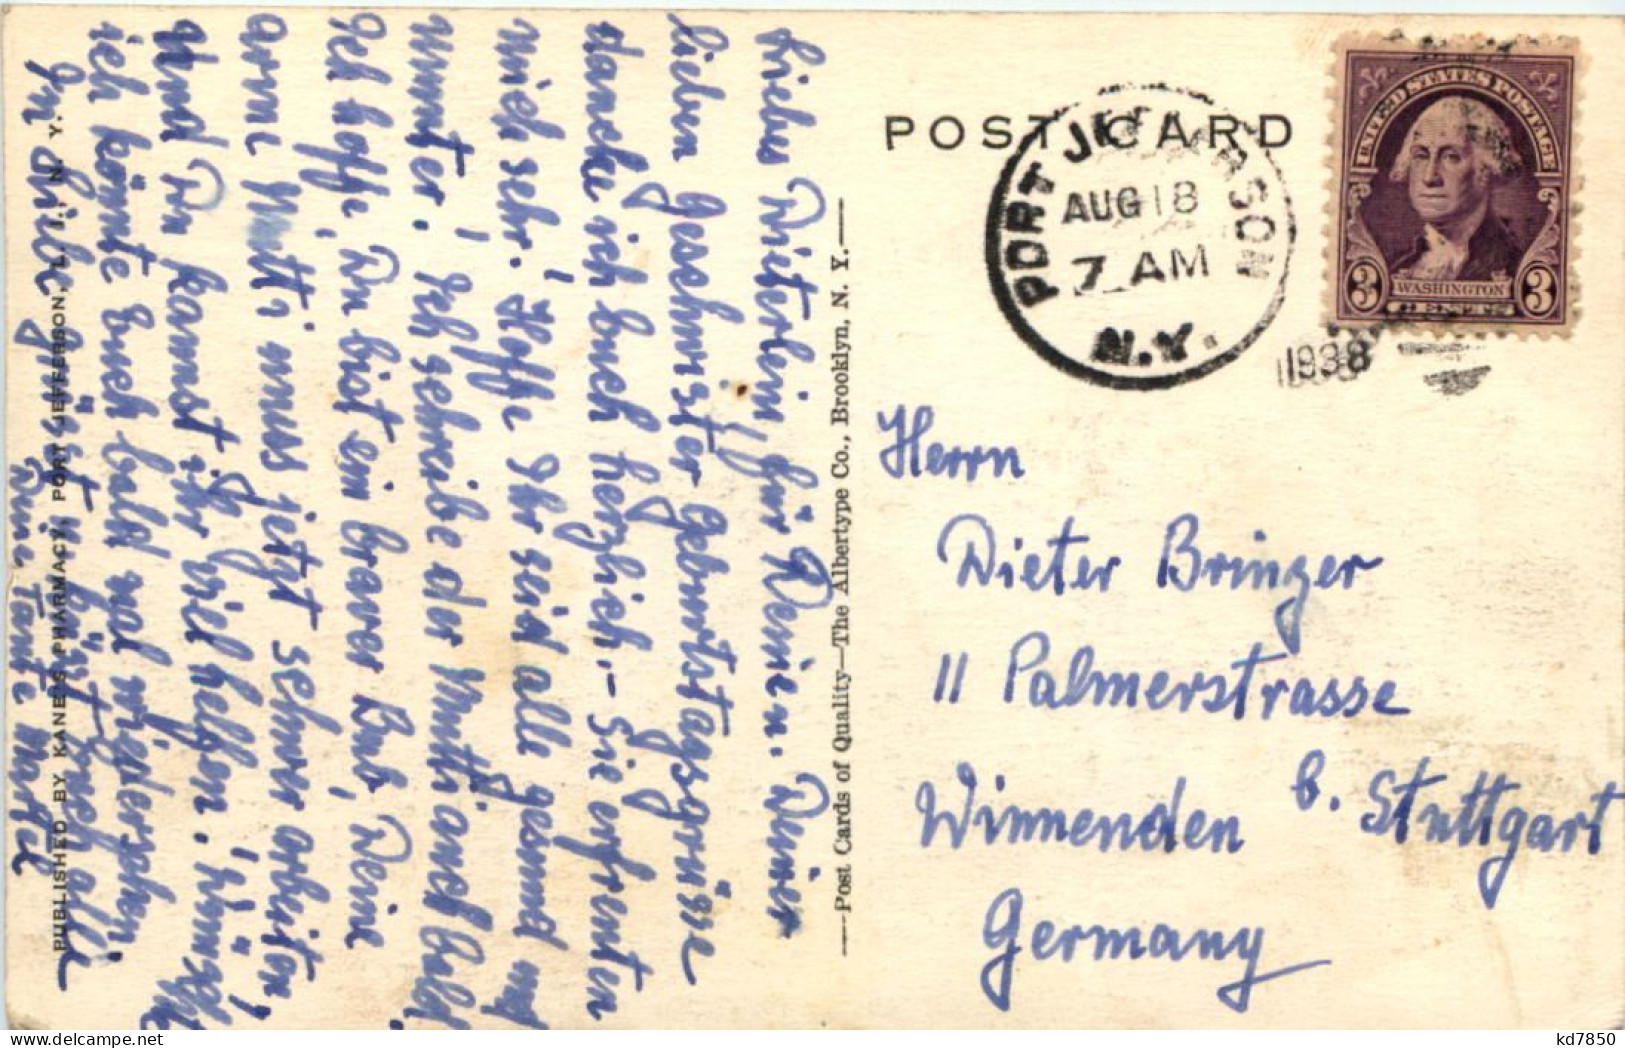 Liebes Dieterlein, für Deine u. Deiner
lieben Geschwister Geburtstagsgrüsse
dancke ich Euch herzlich. – Sie erfreuten
mich sehr. Hoffe Ihr seid alle gesund und
munter. Ich schreibe der Mutti auch bald.
Ich hoffe, Du bist ein braver Bub, Deine
arme Mutti muss jetzt schwer arbeiten,
Und Du kannst ihr viel helfen. Wünschte
ich könnte Euch bald mal wiedersehen.
In Liebe grüsst u. küsst Euch alle
Deine Tante
PUBLISHED BY KANE'S PHARMACY, PORT JEFFERSON, L. I., N. Y.
—Post Cards of Quality—The Albertype Co., Brooklyn, N. Y.—
POST CARD
PORT JEFFERSON
AUG 18
7 AM
N.Y.
1938
UNITED STATES POSTAGE
3 WASHINGTON 3
CENTS
Herrn
Dieter Bringer
11 Palmerstrasse
Winnenden b. Stuttgart
Germany
kd7850